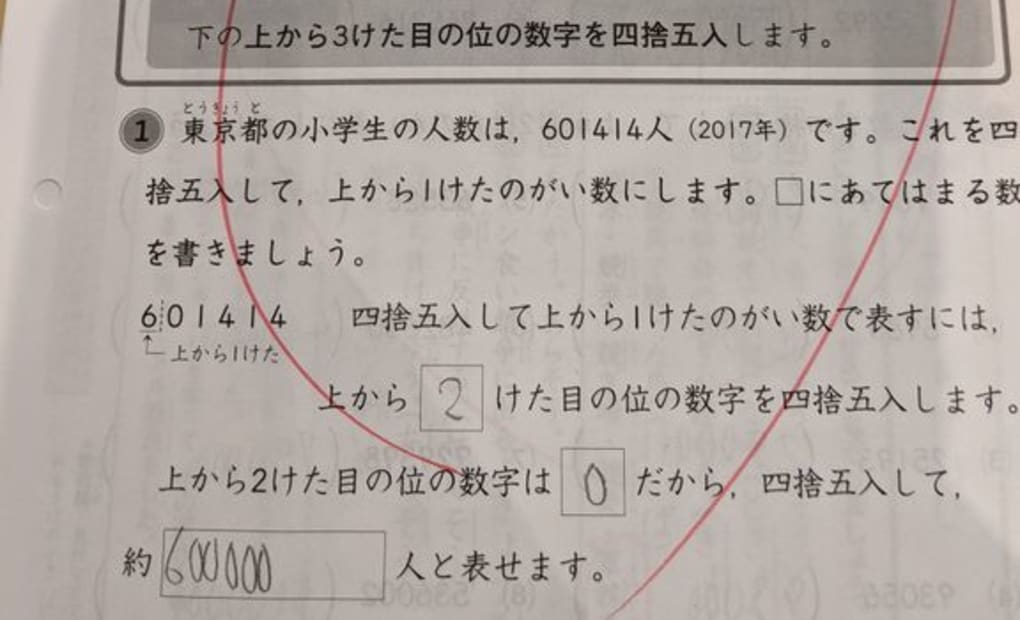 下の上から3けた目の位の数字を四捨五入します。
とうきょうと
1 東京都の小学生の人数は，601414人（2017年）です。これを四
捨五入して，上から1けたのがい数にします。□にあてはまる数
を書きましょう。
601414 四捨五入して上から1けたのがい数で表すには，
上から1けた
上から 2 けた目の位の数字を四捨五入します。
上から2けた目の位の数字は 0 だから，四捨五入して，
約 600000 人と表せます。